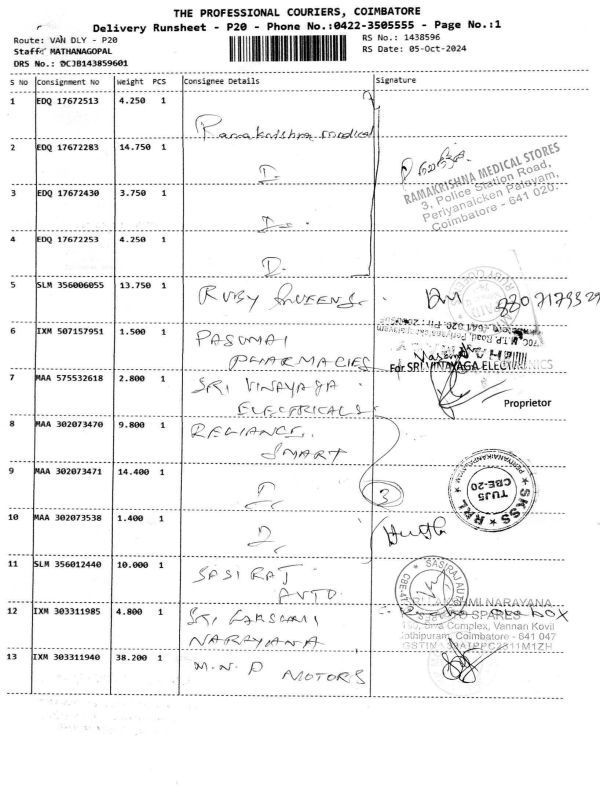 THE PROFESSIONAL COURIERS, COIMBATORE
Delivery Runsheet - P20 - Phone No.:0422-3505555 - Page No.:1
Route: VAN DLY - P20
RS No.: 1438596
Staff: MATHANAGOPAL
RS Date: 05-Oct-2024
DRS No.: DCJB143859601
S No Consignment No Weight PCS Consignee Details Signature
1 EDQ 17672513 4.250 1 Ramakrishna medical
2 EDQ 17672283 14.750 1
RAMAKRISHNA MEDICAL STORES
3, Police Station Road,
Periyanaicken Palayam,
Coimbatore - 641 020.
3 EDQ 17672430 3.750 1
4 EDQ 17672253 4.250 1
5 SLM 356006055 13.750 1 RUBY
6 IXM 507157951 1.500 1 PASUMAI
PHARMACIES
For SRI VINAYAGA ELECTRONICS
7 MAA 575532618 2.800 1 SRI VINAYAGA
ELECTRICALS
Proprietor
8 MAA 302073470 9.800 1 RELIANCE
SMART
9 MAA 302073471 14.400 1
3
SKSS * RRL *
TUJ5
CBE-20
10 MAA 302073538 1.400 1
11 SLM 356012440 10.000 1 SASIRAJ
AUTO
SASIRAJ AUTO
12 IXM 303311985 4.800 1 SRI LAKSHMI
NARAYANA
NARAYANA
SPARES
Complex, Vannan Kovil
Coimbatore - 641 047
13 IXM 303311940 38.200 1 M.N.P MOTORS